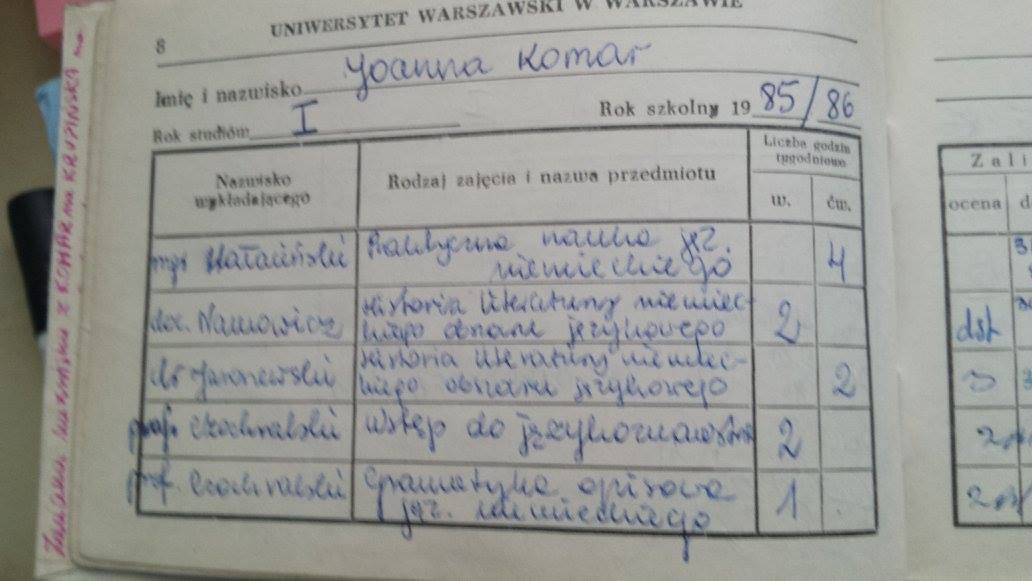 8
UNIWERSYTET WARSZAWSKI W WARSZAWIE
Imię i nazwisko Joanna Komar
Rok studiów I Rok szkolny 19 85/86
Nazwisko wykładającego
Rodzaj zajęcia i nazwa przedmiotu
Liczba godzin tygodniowo
w. ćw.
mgr Praktyczna nauka jęz.
niemieckiego 4
doc. Namowicz Historia literatury niemiec-
kiego obszaru językowego 2
dr Historia literatury niemiec-
kiego obszaru językowego 2
prof. Czochralski Wstęp do językoznawstwa 2
prof. Czochralski Gramatyka opisowa
jęz. niemieckiego 1
Zali
ocena d
dst
Z KOMARNA KRUPIŃSKA